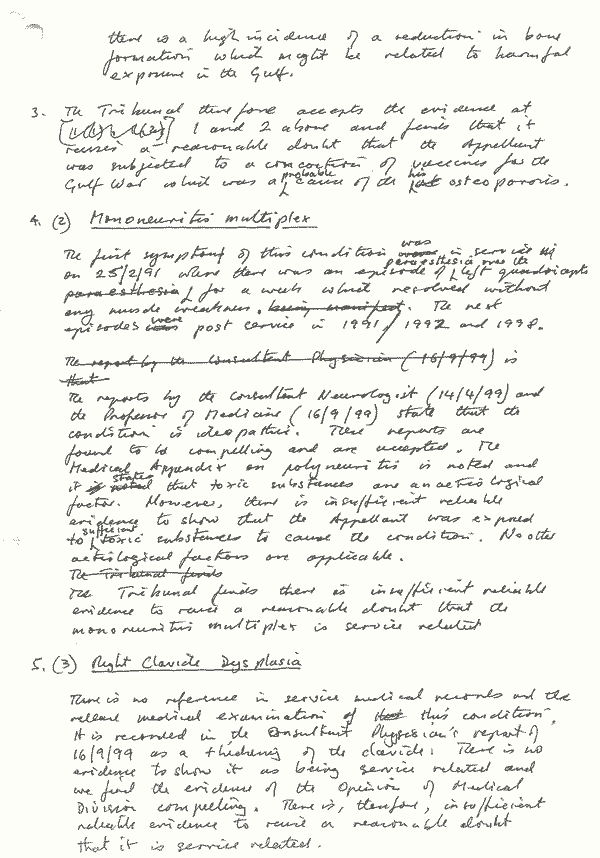 there is a high incidence of a reduction in bone
formation which might be related to harmful
exposure in the Gulf.
3. The Tribunal therefore accepts the evidence at
1 and 2 above and finds that it
raises a reasonable doubt that the Appellant
was subjected to a concoction of vaccines for the
Gulf War which was a probable cause of the his osteoporosis.
4. (2) Mononeuritis multiplex
The first symptom of this condition was in service
on 25/2/91 where there was an episode of paraesthesia over the left quadriceps
paraesthesia for a week which resolved without
any muscle weakness. being manifest. The next
episodes were post service in 1991, 1992 and 1998.
The report by the Consultant Physician (16/9/99) is
that
The reports by the Consultant Neurologist (14/4/99) and
the Professor of Medicine (16/9/99) state that the
condition is ideopathic. These reports are
found to be compelling and are accepted. The
Medical Appendix on polyneuritis is noted and
it is noted states that toxic substances are an aetiological
factor. However, there is insufficient reliable
evidence to show that the Appellant was exposed
to sufficient toxic substances to cause the condition. No other
aetiological factors are applicable.
The Tribunal finds
The Tribunal finds there is insufficient reliable
evidence to raise a reasonable doubt that the
mononeuritis multiplex is service related
5. (3) Right Clavicle Dysplasia
There is no reference in service medical records and the
release medical examination of that this condition.
It is recorded in the Consultant Physician's report of
16/9/99 as a thickening of the clavicle. There is no
evidence to show it as being service related and
we find the evidence of the Opinion of Medical
Division compelling. There is, therefore, insufficient
reliable evidence to raise a reasonable doubt
that it is service related.